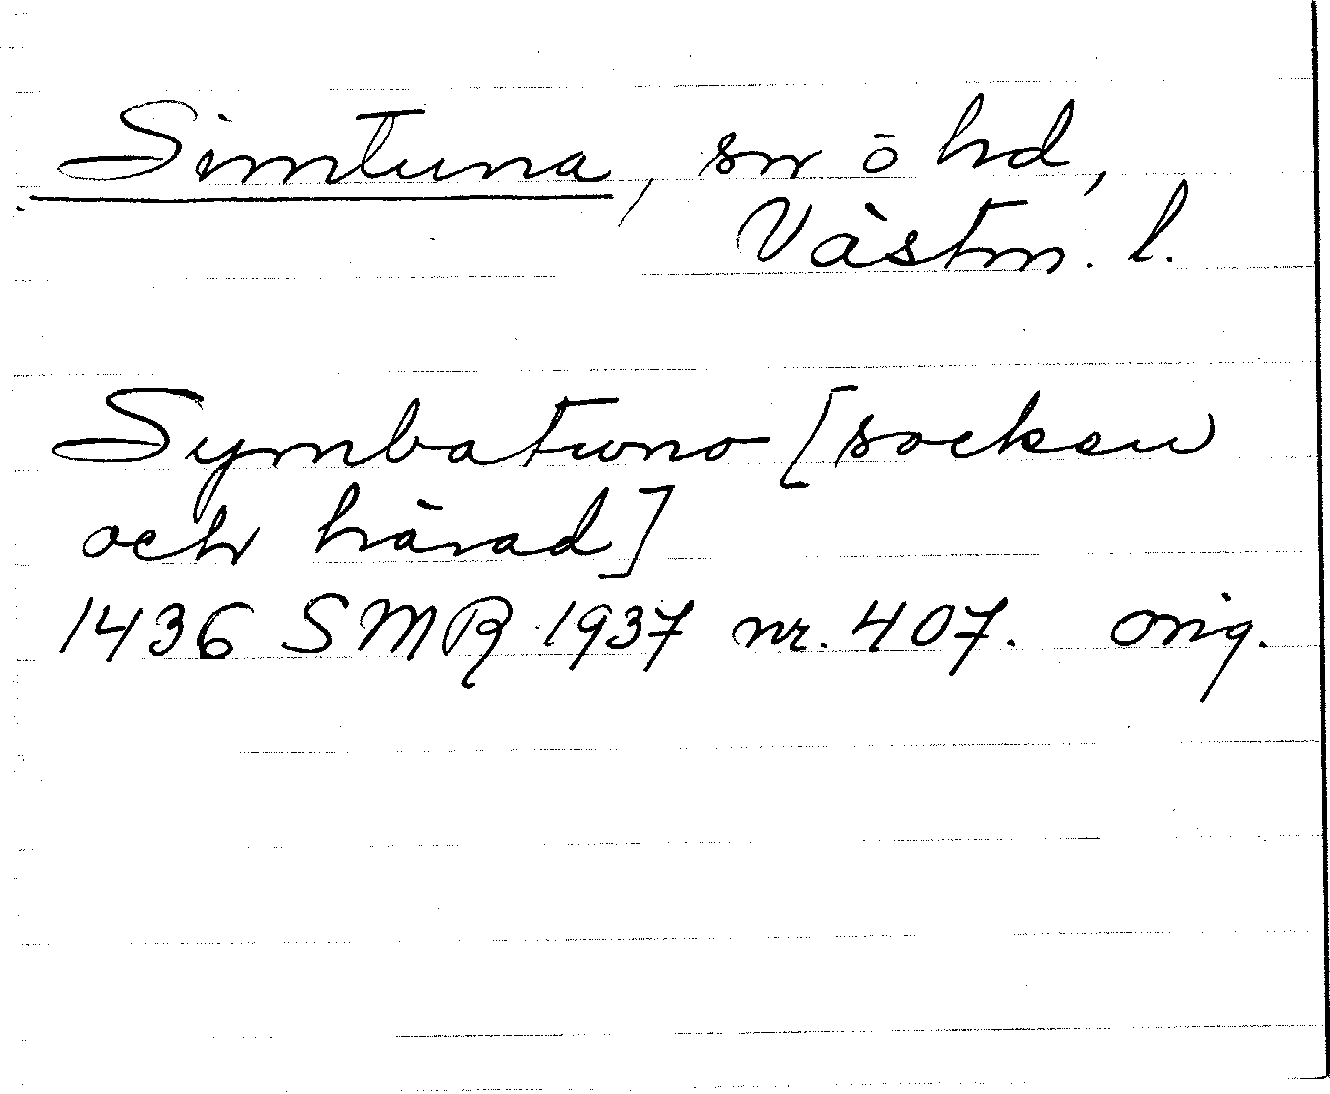 Simtuna, sn o hd,
Västm. l.
Symbatuna [socken
och härad]
1436 SMR 1937 nr. 407. orig.